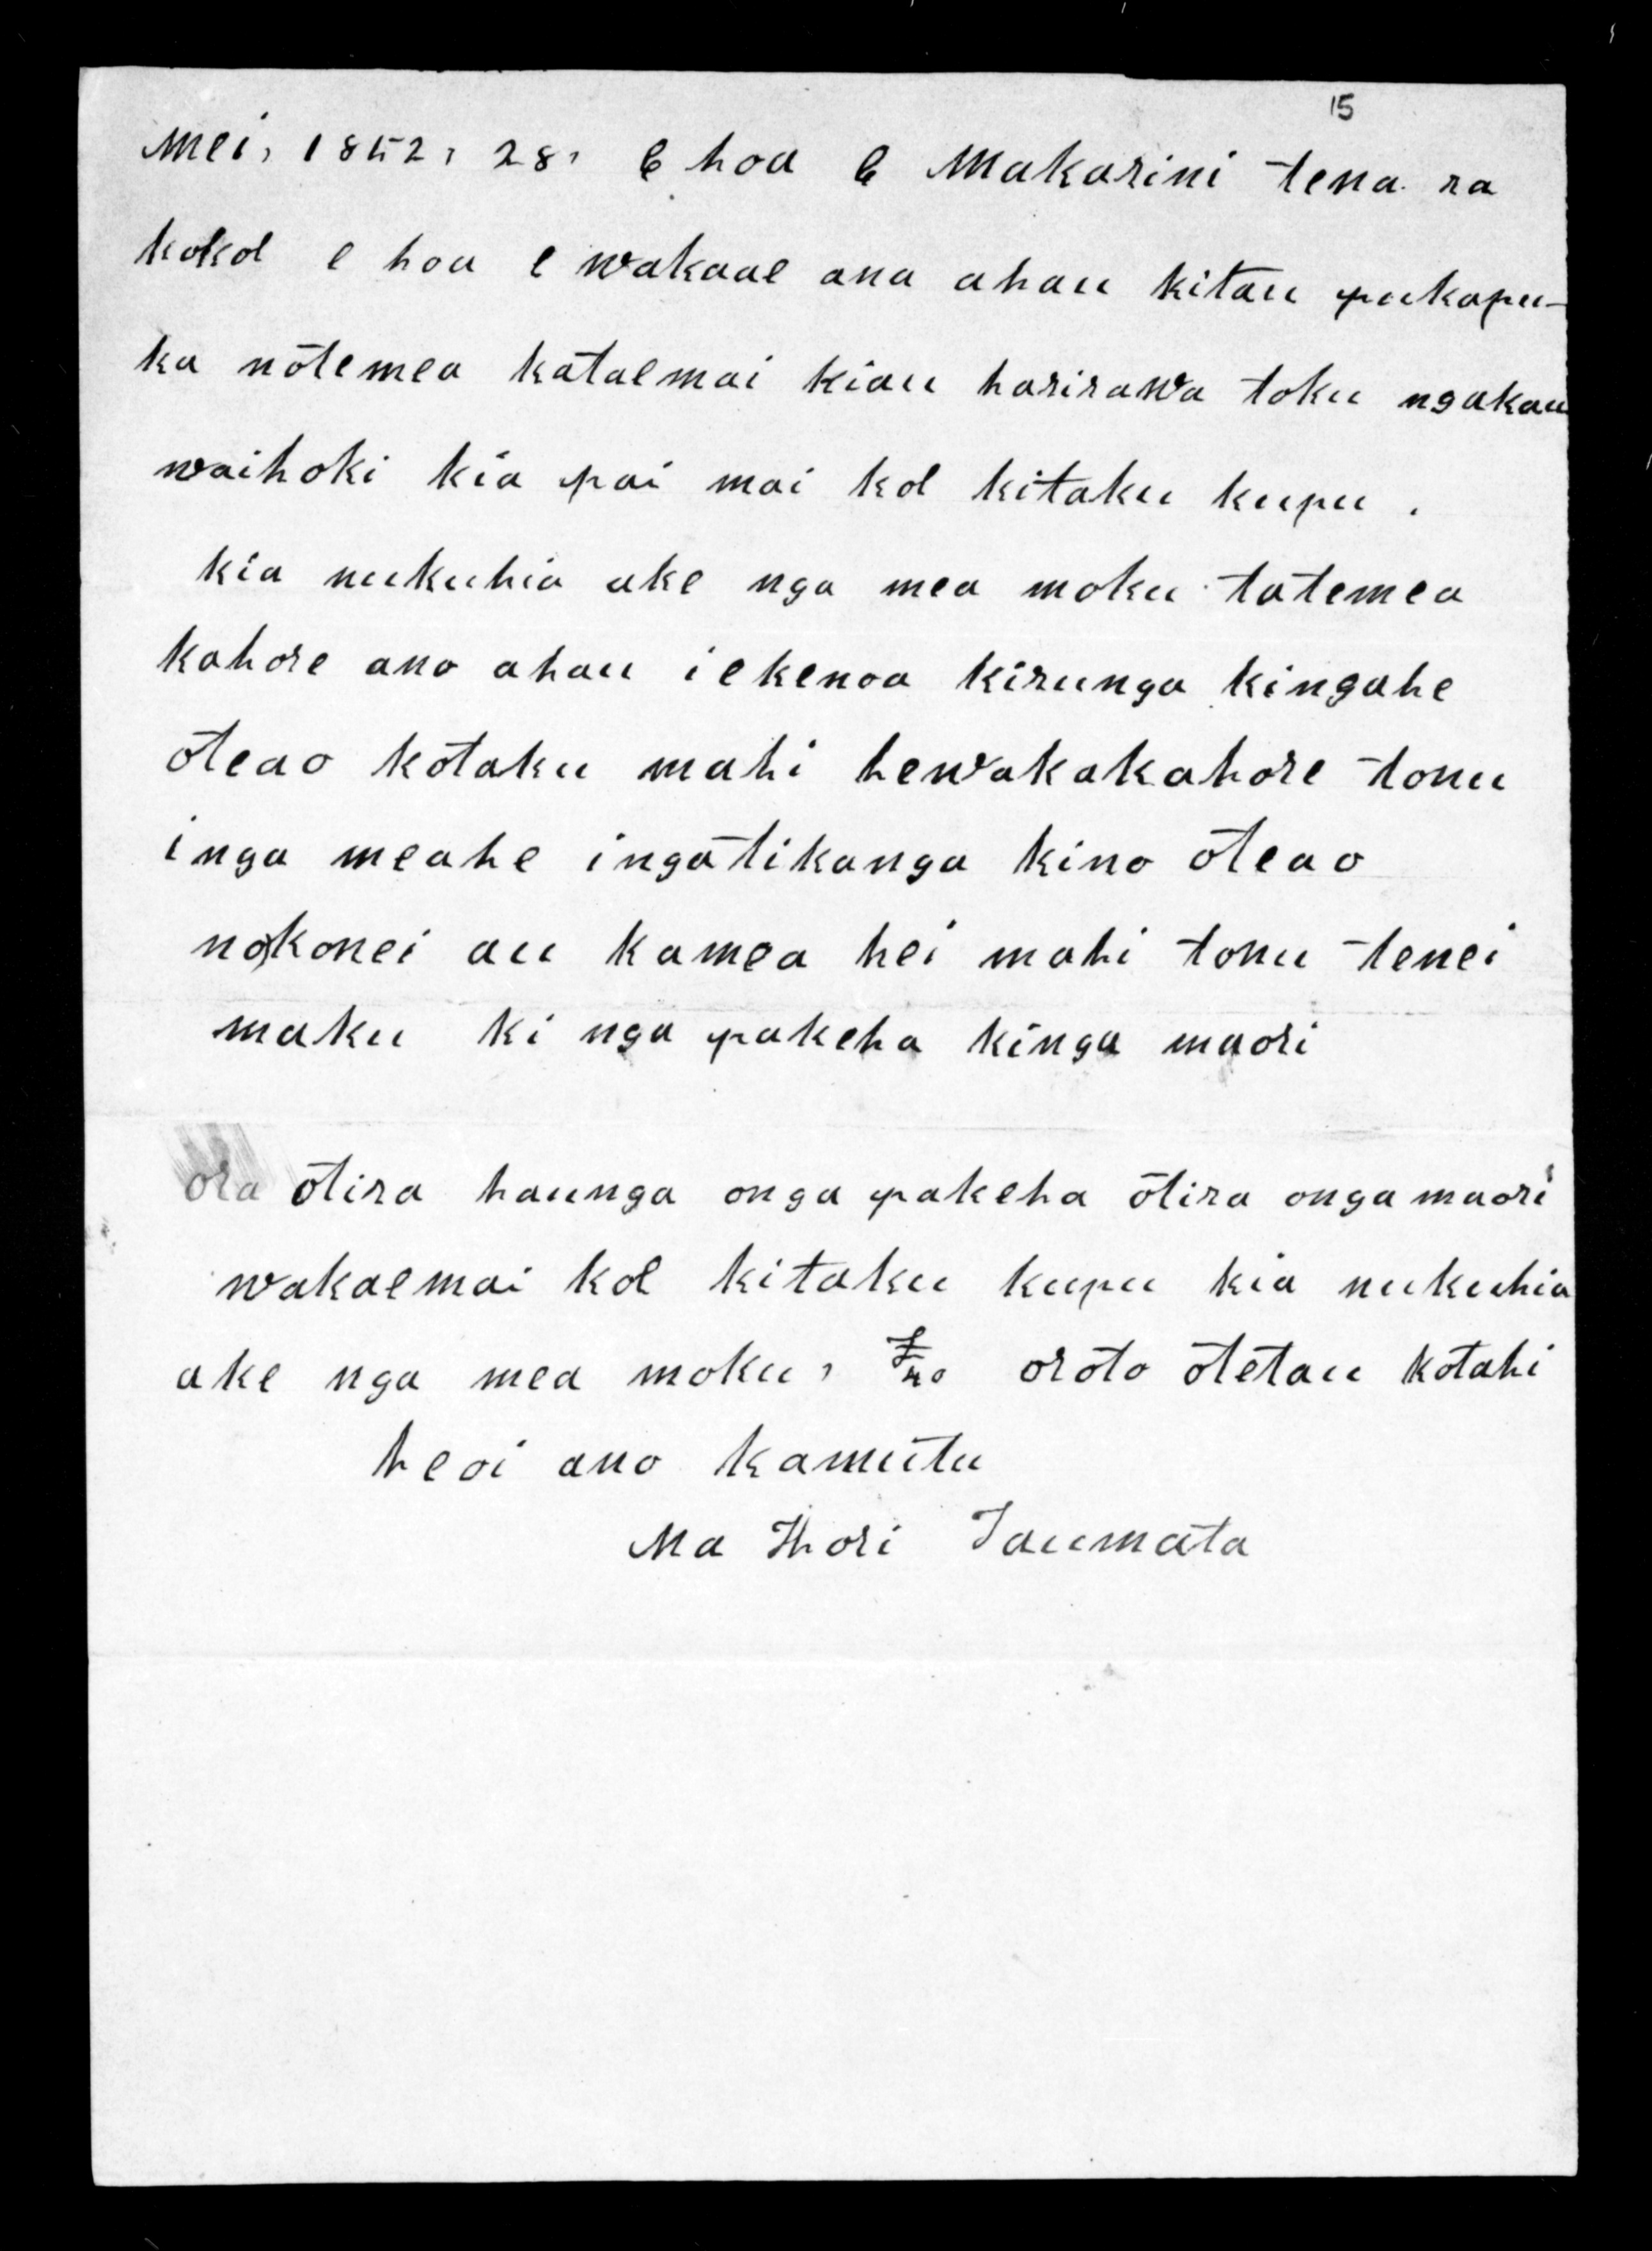 15
Mei, 1852, 28, E hoa E Makarini tena ra
kokoe e hoa e wakaae ana ahau kitau pukapu-
ka notemea katae mai kiau harirawa toku ngakau
waihoki kia pai mai koe kitaku kupu .
kia nukuhia ake nga mea moku tatemea
kahore ano ahau i ekenoa kirunga kingahe
oteao kotaku mahi hewakakahore tonu
inga meahe ingatikanga kino oteao
nokonei au kamea hei mahi tonu tenei
maku ki nga pakeha kinga maori
ora otira haunga onga pakeha otira onga maori
wakaemai koe kitaku kupu kia nukuhia
ake nga mea moku, oroto otetau kotahi
heoi ano kamutu
Na Hori Taumata